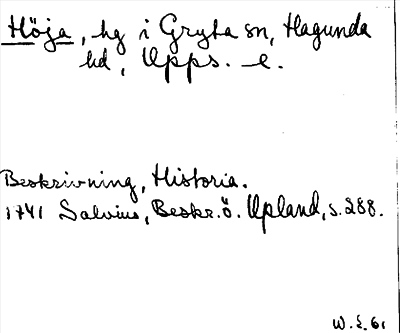 Höja, hg i Gryta sn, Hagunda
hd, Upps. l.
Beskrivning, Historia.
1741 Salvius, Beskr. ö. Upland, s. 288.
W.E. 61